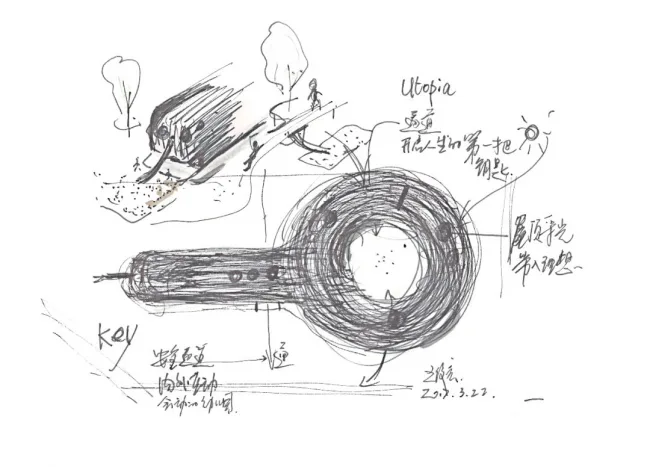 Utopia
通道
开启人生的第一把
钥匙
屋顶采光
带入理想
Key
安全通道
通
内外互动
会动的幼儿园
3.22.